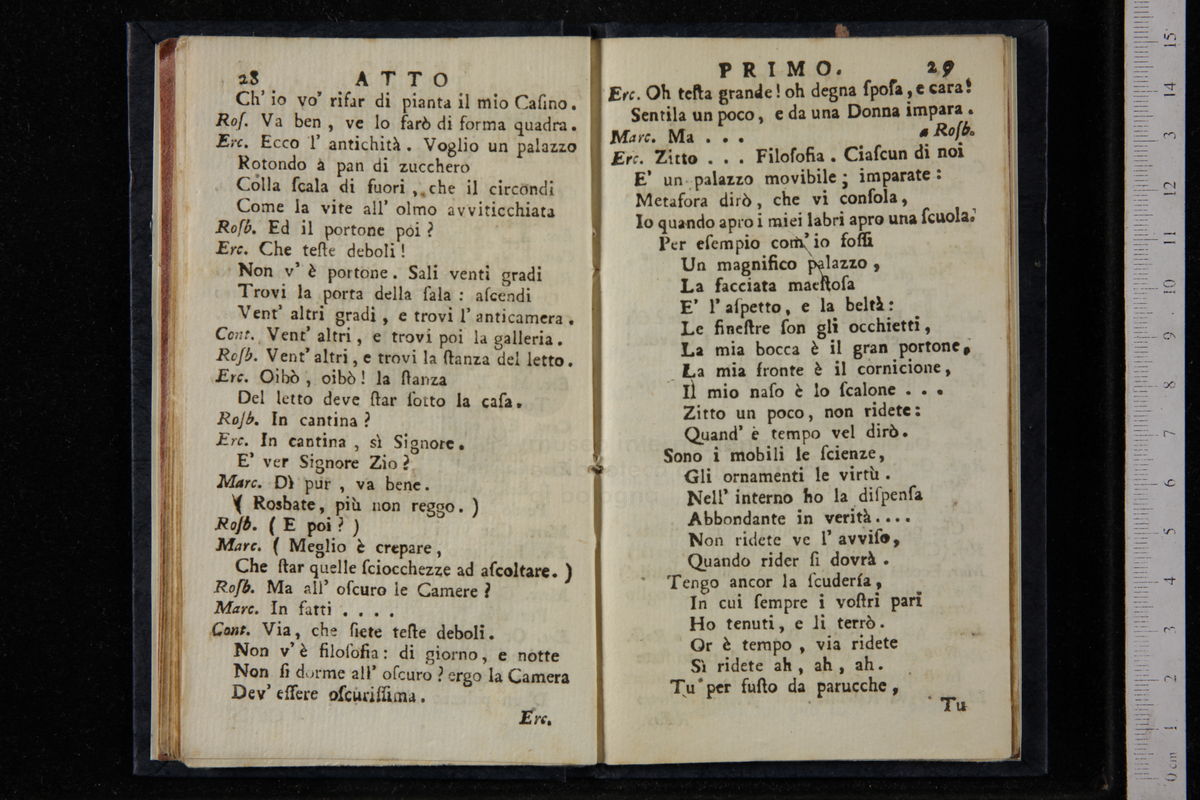 28 ATTO
Ch' io vo' rifar di pianta il mio Caſino.
Roſ. Va ben, ve lo farò di forma quadra.
Erc. Ecco l' antichità. Voglio un palazzo
Rotondo a pan di zucchero
Colla ſcala di fuori, che il circondi
Come la vite all' olmo avviticchiata
Roſb. Ed il portone poi?
Erc. Che teſte deboli!
Non v' è portone. Sali venti gradi
Trovi la porta della ſala: aſcendi
Vent' altri gradi, e trovi l' anticamera.
Cont. Vent' altri, e trovi poi la galleria.
Roſb. Vent' altri, e trovi la ſtanza del letto.
Erc. Oibò, oibò! la ſtanza
Del letto deve ſtar ſotto la caſa.
Roſb. In cantina?
Erc. In cantina, sì Signore.
E' ver Signore Zio?
Marc. Dì pur, va bene.
( Rosbate, più non reggo. )
Roſb. ( E poi? )
Marc. ( Meglio è crepare,
Che ſtar quelle ſciocchezze ad aſcoltare. )
Roſb. Ma all' oſcuro le Camere?
Marc. In fatti ....
Cont. Via, che ſiete teſte deboli.
Non v' è filoſofia: di giorno, e notte
Non ſi dorme all' oſcuro? ergo la Camera
Dev' eſſere oſcuriſſima.
Erc.
PRIMO. 29
Erc. Oh teſta grande! oh degna ſpoſa, e cara!
Sentila un poco, e da una Donna impara.
Marc. Ma ... a Roſb.
Erc. Zitto ... Filoſofia. Ciaſcun di noi
E' un palazzo movibile; imparate:
Metafora dirò, che vi conſola,
Io quando apro i miei labri apro una ſcuola.
Per eſempio com' io foſſi
Un magnifico palazzo,
La facciata maeſtoſa
E' l' aſpetto, e la beltà:
Le fineſtre ſon gli occhietti,
La mia bocca è il gran portone,
La mia fronte è il cornicione,
Il mio naſo è lo ſcalone ...
Zitto un poco, non ridete:
Quand' è tempo vel dirò.
Sono i mobili le ſcienze,
Gli ornamenti le virtù.
Nell' interno ho la diſpenſa
Abbondante in verità....
Non ridete ve l' avviſo,
Quando rider ſi dovrà.
Tengo ancor la ſcudería,
In cui ſempre i voſtri pari
Ho tenuti, e li terrò.
Or è tempo, via ridete
Sì ridete ah, ah, ah.
Tu per fuſto da parucche,
Tu